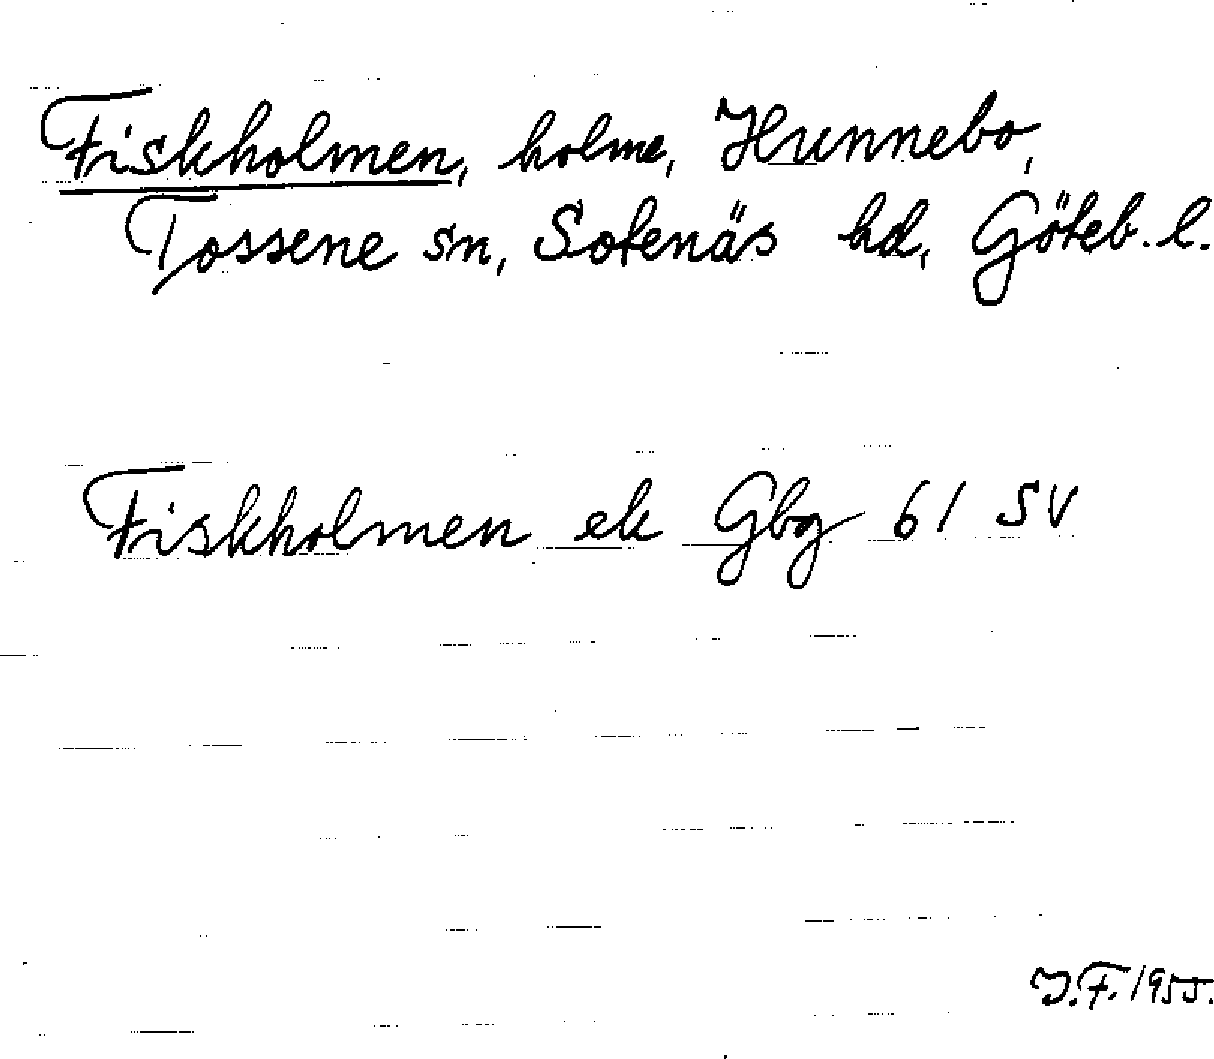 Fiskholmen, holme, Hunnebo,
Tossene sn, Sotenäs hd, Göteb. l.
Fiskholmen ek Gbg 61 SV
J.F. 1955.